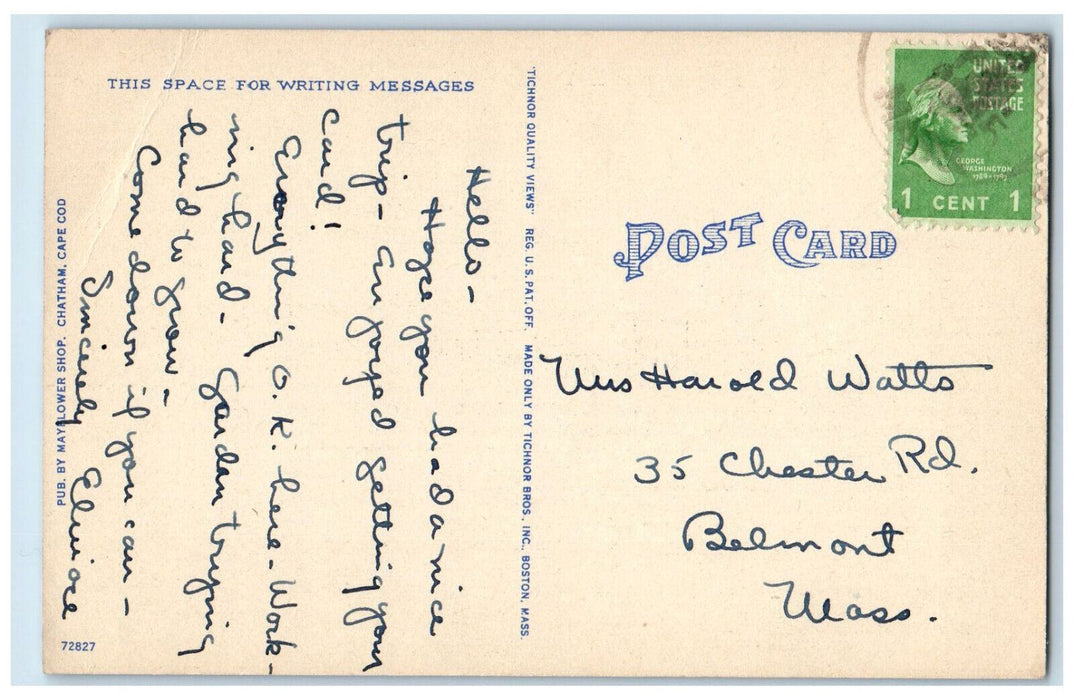 THIS SPACE FOR WRITING MESSAGES
Hello -
Hope you had a nice
trip - Enjoyed getting your
card!
Everything O.K. here - Work-
ing hard - Garden trying
hard to grow -
Come down if you can -
Sincerely
PUB. BY MAYFLOWER SHOP, CHATHAM, CAPE COD
72827
"TICHNOR QUALITY VIEWS" REG. U.S. PAT. OFF. MADE ONLY BY TICHNOR BROS., INC., BOSTON, MASS.
POST CARD
UNITED
STATES
POSTAGE
GEORGE
WASHINGTON
1789-1797
1 CENT 1
Mrs Harold Watts
35 Chester Rd.
Belmont
Mass.